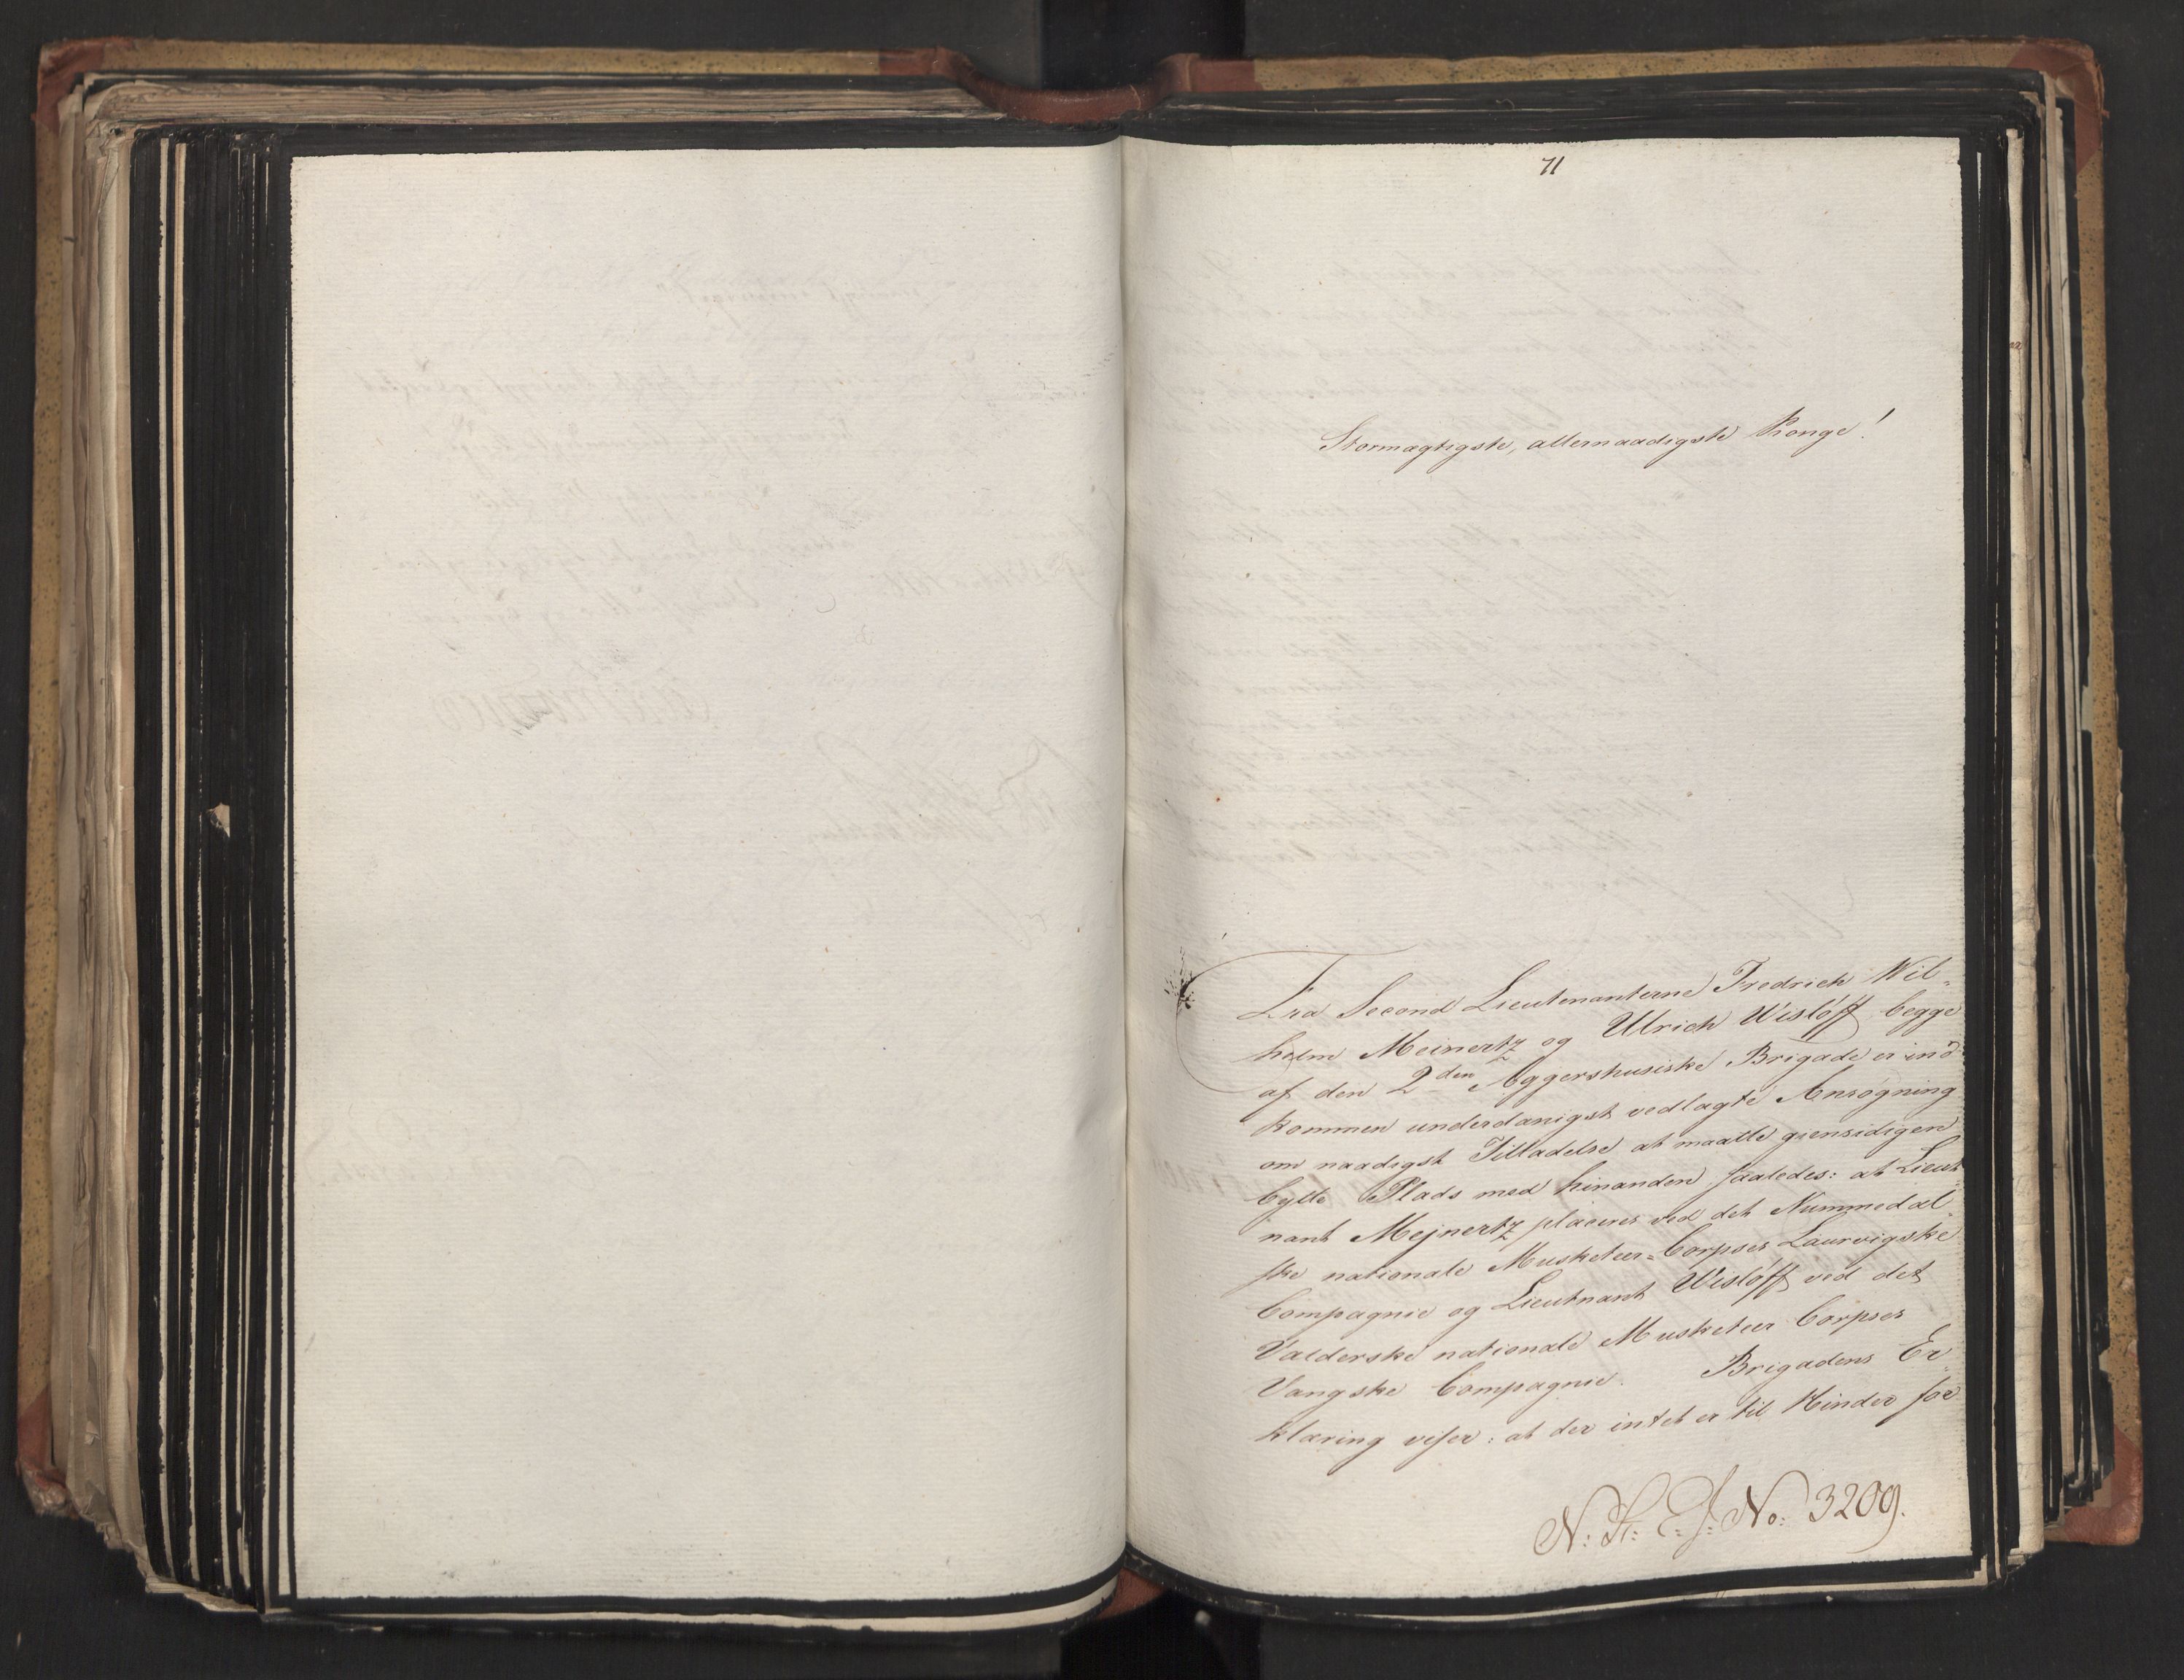 71
Stormægtigste, allernaadigste Konge!
Fra Second Lieutenanterne Fredrich Wil-
helm Meinertz og Ulrich Wisløff begge
af den 2den Aggershusiske Brigade er ind-
kommen underdanigst vedlagte Ansøgning
om naadigst Tilladelse at maatte gjensidigen
bytte Plads med hinanden saaledes: at Lieut-
nant Mejnertz placeres ved det Nummedal-
ske nationale Musketeer-Corpses Laurvigske
Compagnie og Lieutnant Wisløff ved det
Valderske nationale Musketeer Corpses
Vangske Compagnie. Brigadens Er-
klæring viser: at der intet er til Hinder for
N: St: E: J: No: 3209.